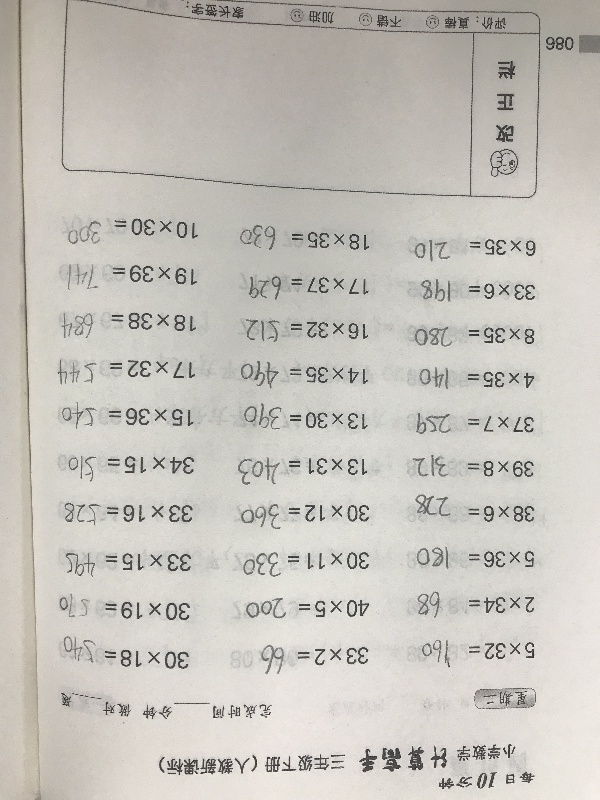 每日10分钟
小学数学 计算高手 三年级下册（人教新课标）
完成时间____分钟 做对____题
5×32=160 33×2=66 30×18=540
2×34=68 40×5=200 30×19=570
5×36=180 30×11=330 33×15=495
38×6=228 30×12=360 33×16=528
39×8=312 13×31=403 34×15=510
37×7=259 13×30=390 15×36=540
4×35=140 14×35=490 17×32=544
8×35=280 16×32=512 18×38=684
33×6=198 17×37=629 19×39=741
6×35=210 18×35=630 10×30=300
改正栏
评价：真棒 不错 加油 家长签字：
086